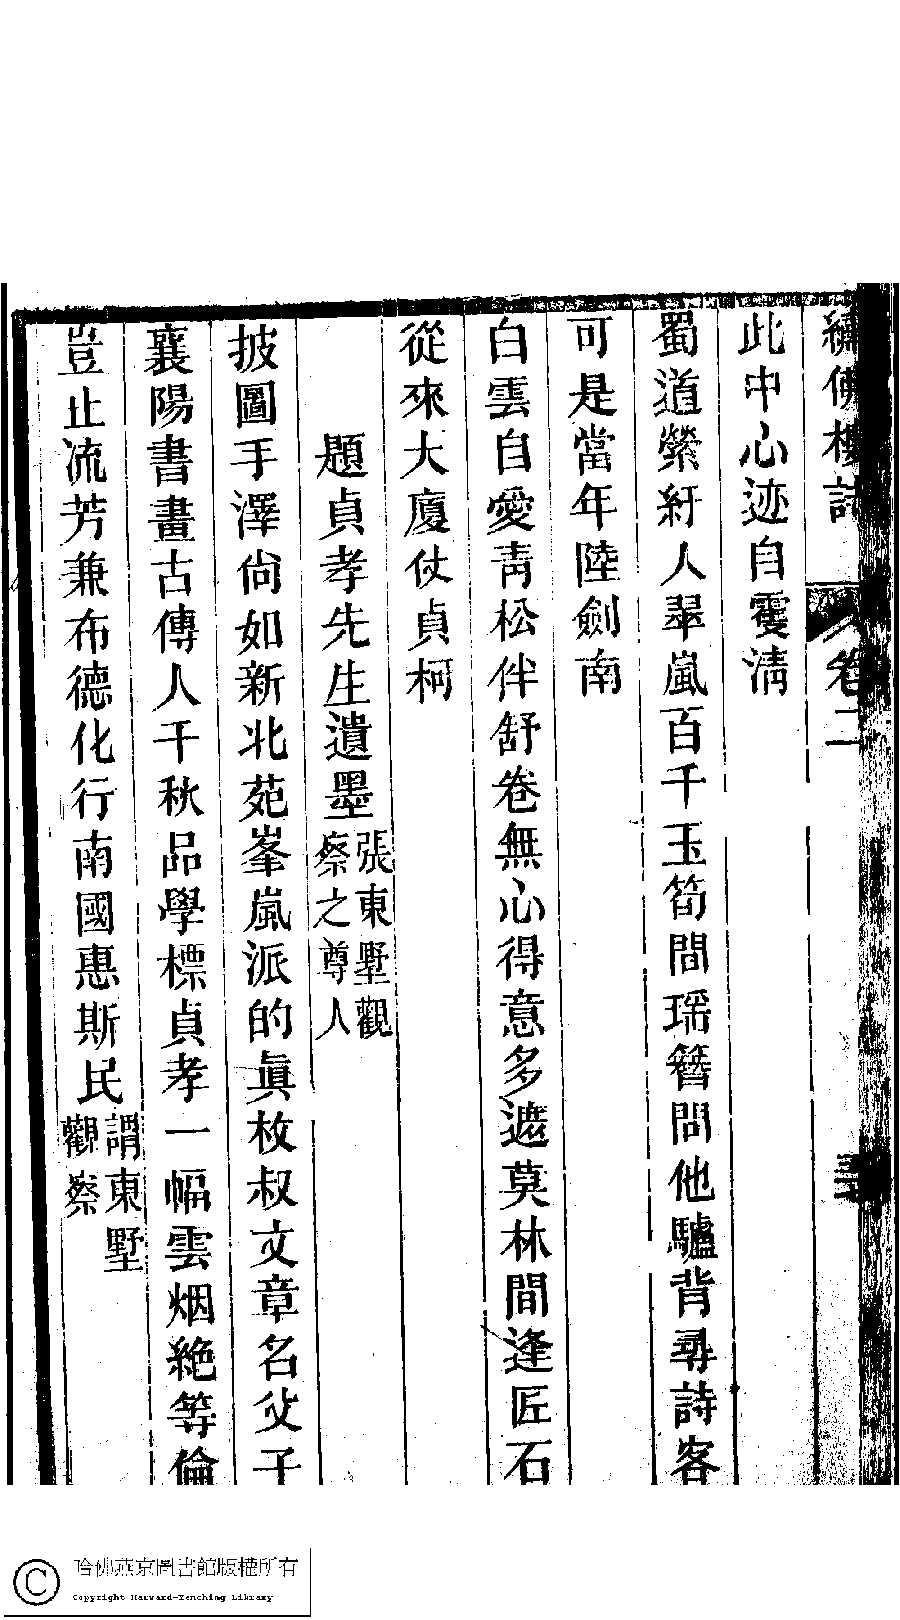 繡佛樓詩 卷二
此中心迹自雙清
蜀道縈紆人翠嵐百千玉筍間瑶簪問他驢背尋詩客
可是當年陸劍南
白雲自愛青松伴舒卷無心得意多遮莫林間逢匠石
從來大廈仗貞柯
題貞孝先生遺墨張東墅觀
察之尊人
披圖手澤尙如新北苑峯嵐派的眞枚叔文章名父子
襄陽書畫古傳人千秋品學標貞孝一幅雲烟絶等倫
豈止流芳兼布德化行南國惠斯民謂東墅
觀察
哈佛燕京圖書館版權所有
Copyright Harvard-Yenching Library